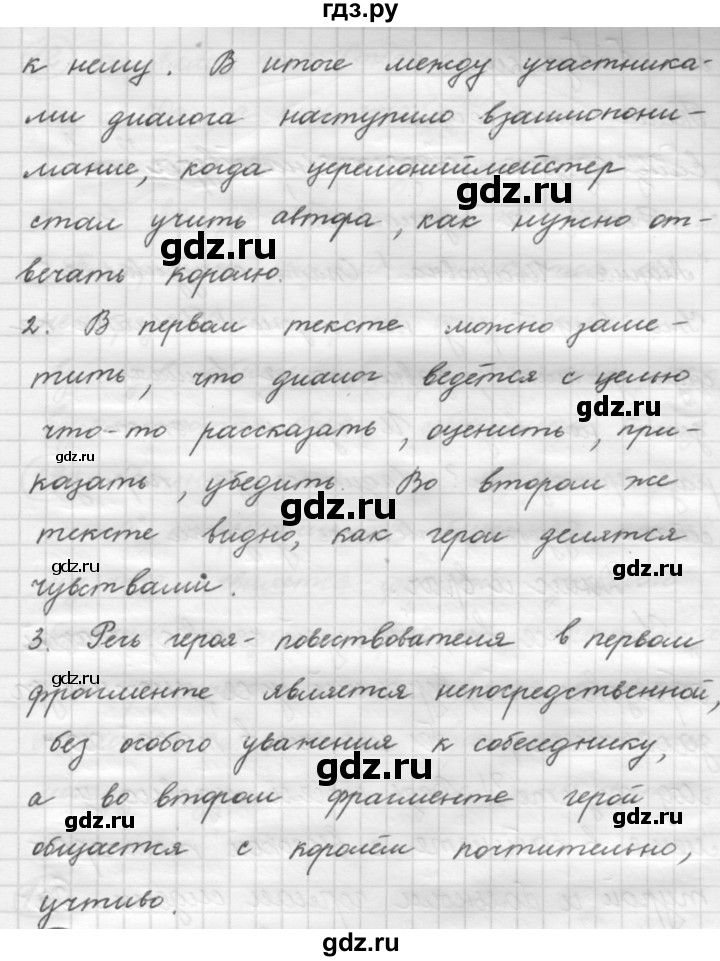 гдз.ру
к нему. В итоге между участника-
ми диалога наступило взаимопони-
мание, когда церемониймейстер
gdz.ru
стал учить автора, как нужно от-
gdz.ru
вечать королю.
2. В первом тексте можно заме-
тить, что диалог ведётся с целью
gdz.ru
что-то рассказать, оценить, при-
gdz.ru
казать, убедить. Во втором же
gdz.ru
тексте видно, как герои делятся
gdz.ru
gdz.ru
чувствами.
3. Речь героя-повествователя в первом
gdz.ru
фрагменте является непосредственной,
без особого уважения к собеседнику,
gdz.ru
а во втором фрагменте герой
gdz.ru
gdz.ru
общается с королём почтительно,
учтиво.
gdz.ru